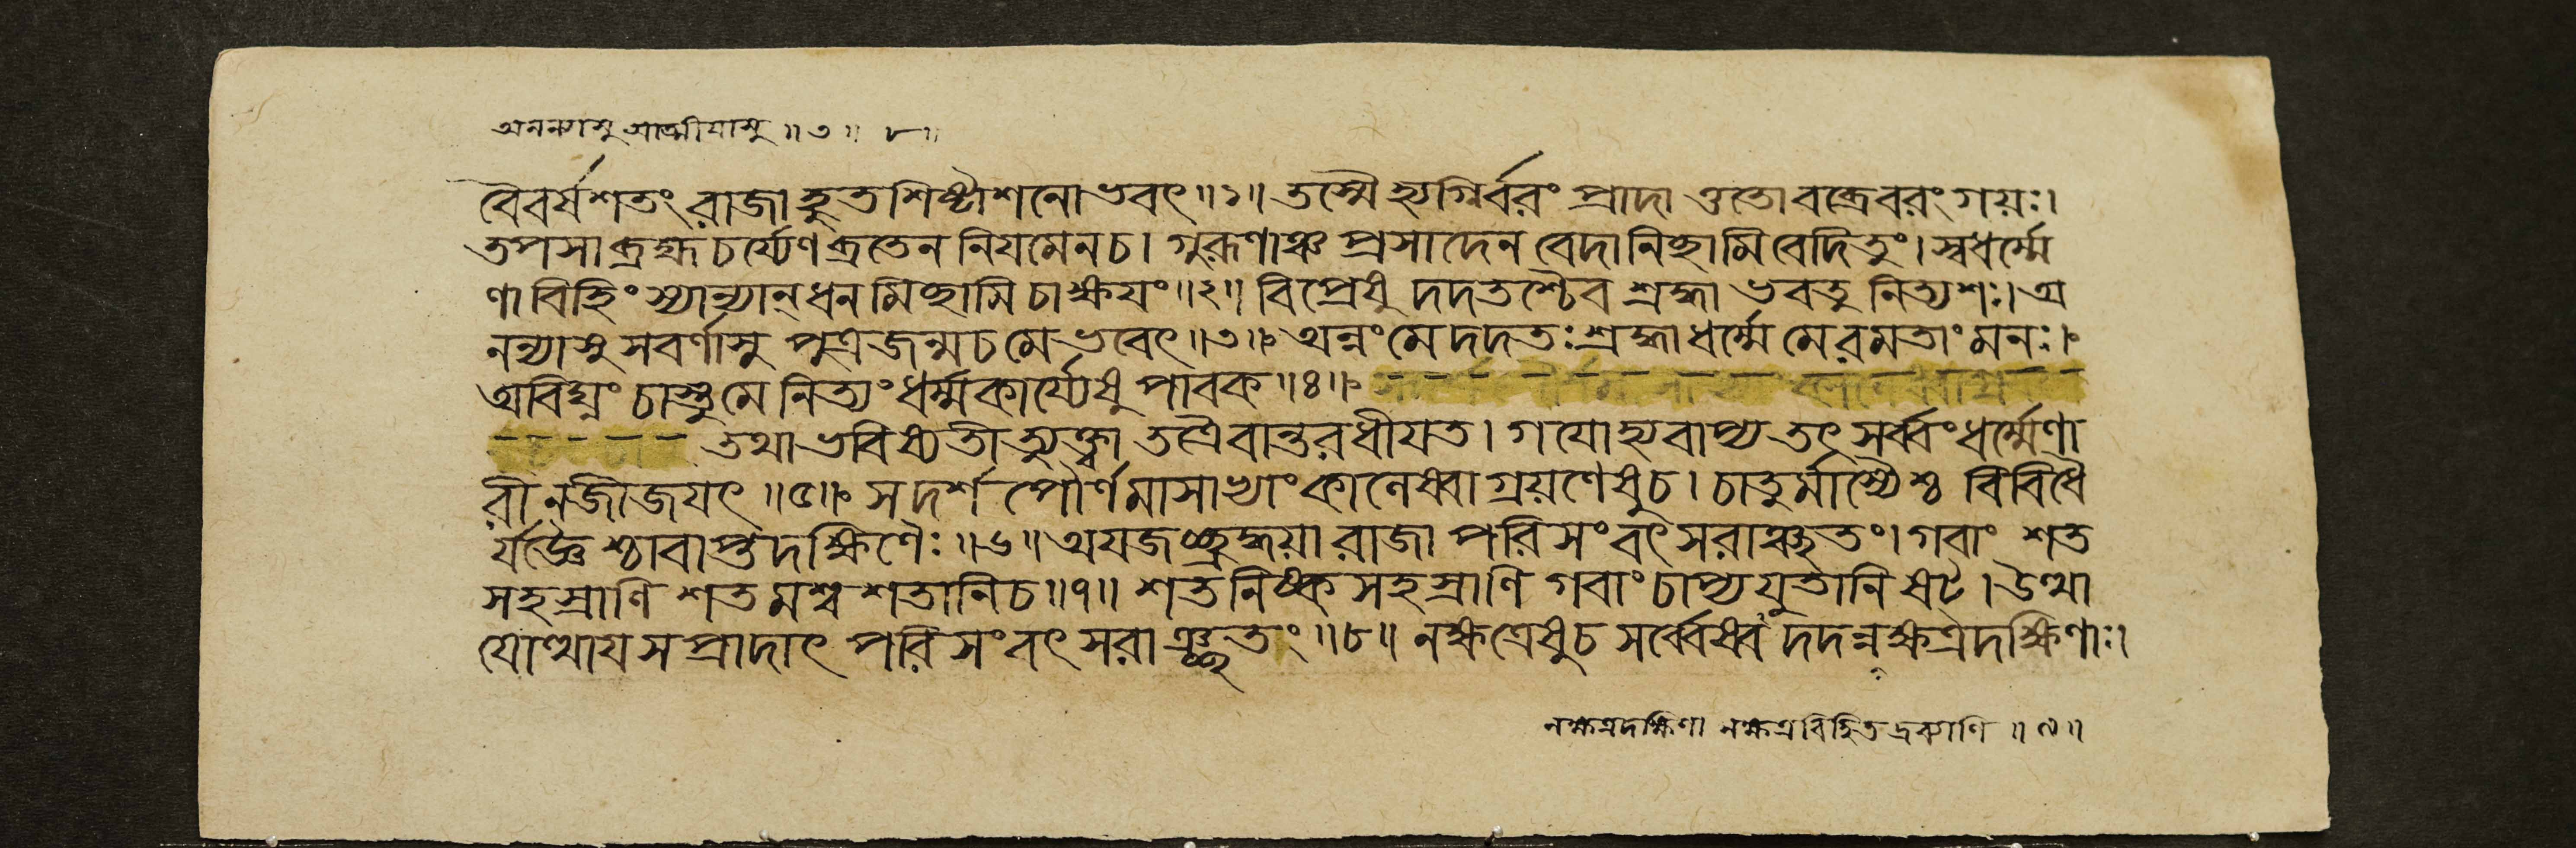 অনন্যাসু আত্মীয়াসু ॥ ৩ ॥ ৮ ॥
বৈবর্ষশতং রাজা হুতশিষ্টাশনোঽভবৎ ॥ ১ ॥ তস্মৈ হ্যগ্নির্বরং প্রাদাত্ততো বব্রে বরং গয়ঃ ।
তপসা ব্রহ্মচর্য্যেণ ব্রতেন নিয়মেন চ । গুরূণাঞ্চ প্রসাদেন বেদানিচ্ছামি বেদিতুং । স্বধর্ম্মে
ণাবিহিংস্যান্যান্ ধনমিচ্ছামি চাক্ষয়ং ॥ ২ ॥ বিপ্রেষু দদতশ্চৈব শ্রদ্ধা ভবতু নিত্যশঃ । অ
নন্যাসু সবর্ণাসু পুত্রজন্ম চ মে ভবেৎ ॥ ৩ ॥ অন্নং মে দদতঃ শ্রদ্ধা ধর্ম্মে মে রমতাং মনঃ ।
অবিঘ্নং চাস্তু মে নিত্যং ধর্ম্মকার্য্যেষু পাবক ॥ ৪ ॥
তথা ভবিষ্যতীত্যুক্ত্বা তত্রৈবান্তরধীয়ত । গয়োহ্যবাপ্য তৎ সর্ব্বং ধর্ম্মেণা
রীনজীজয়ৎ ॥ ৫ ॥ স দর্শপৌর্ণমাসাখ্যাং কালেষ্বাগ্রয়ণেষু চ । চাতুর্মাস্যৈশ্চ বিবিধৈ
র্যজ্ঞৈশ্চাবাপ্তদক্ষিণৈঃ ॥ ৬ ॥ অযজচ্ছ্রদ্ধয়া রাজা পরিসংবৎসরাঞ্ছতং । গবাং শত
সহস্রাণি শতমশ্বশতানি চ ॥ ৭ ॥ শতনিষ্কসহস্রাণি গবাং চাপ্যযুতানি ষট্ । উত্থা
যোত্থায় স প্রাদাৎ পরিসংবৎসরাঞ্ছতং ॥ ৮ ॥ নক্ষত্রেষু চ সর্ব্বেষু দদন্নক্ষত্রদক্ষিণাঃ ।
নক্ষত্রদক্ষিণা নক্ষত্রবিহিতদ্রব্যাণি ॥ ৯ ॥